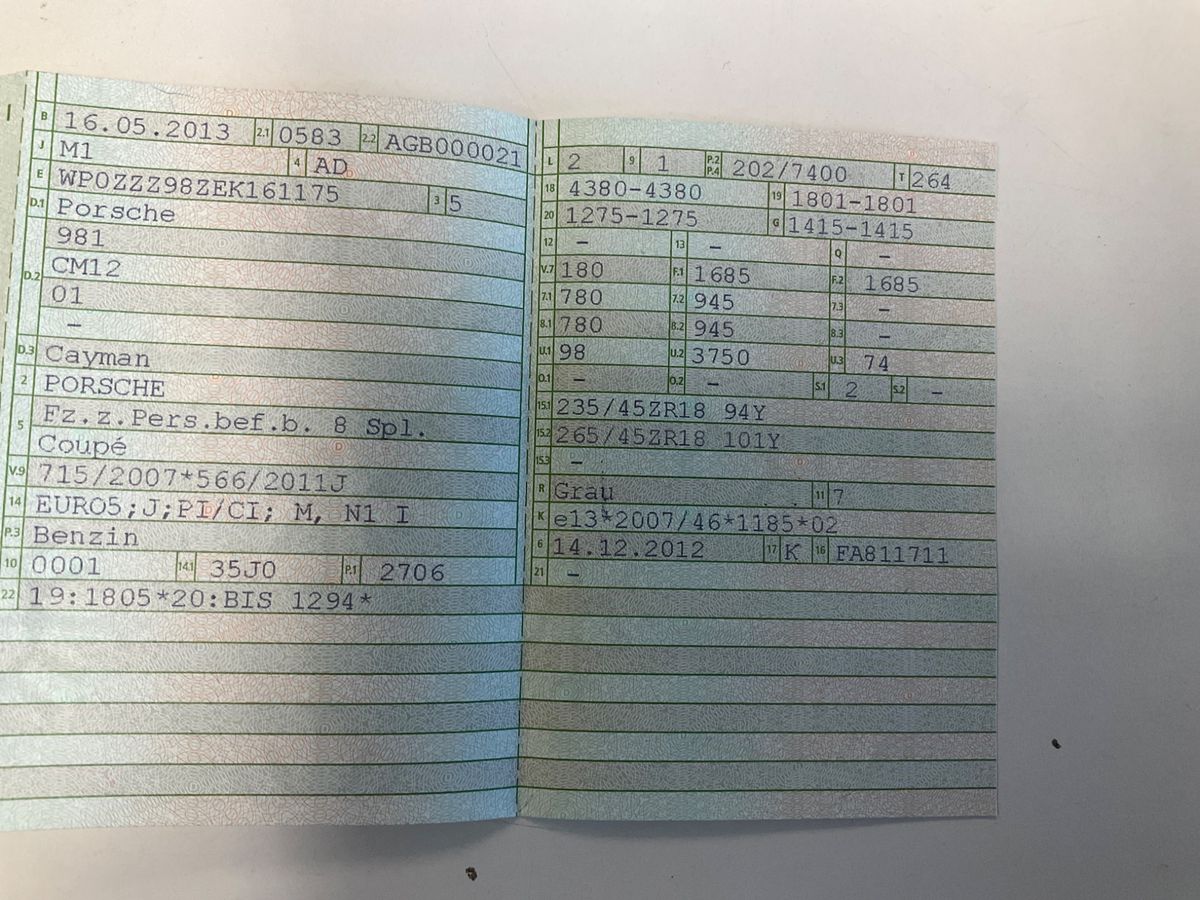 B 16.05.2013 2.1 0583 2.2 AGB000021
J M1 4 AD
E WP0ZZZ98ZEK161175 3 5
D.1 Porsche
981
D.2 CM12
01
–
D.3 Cayman
2 PORSCHE
5 Fz.z.Pers.bef.b. 8 Spl.
Coupé
V.9 715/2007*566/2011J
14 EURO5;J;PI/CI; M, N1 I
P.3 Benzin
10 0001 14.1 35J0 P.1 2706
22 19:1805*20:BIS 1294*
L 2 9 1 P.2 P.4 202/7400 T 264
18 4380-4380 19 1801-1801
20 1275-1275 G 1415-1415
12 – 13 – Q –
V.7 180 F.1 1685 F.2 1685
7.1 780 7.2 945 7.3 –
8.1 780 8.2 945 8.3 –
U.1 98 U.2 3750 U.3 74
O.1 – O.2 – S.1 2 S.2 –
15.1 235/45ZR18 94Y
15.2 265/45ZR18 101Y
15.3 –
R Grau 11 7
K e13*2007/46*1185*02
6 14.12.2012 17 K 16 FA811711
21 –